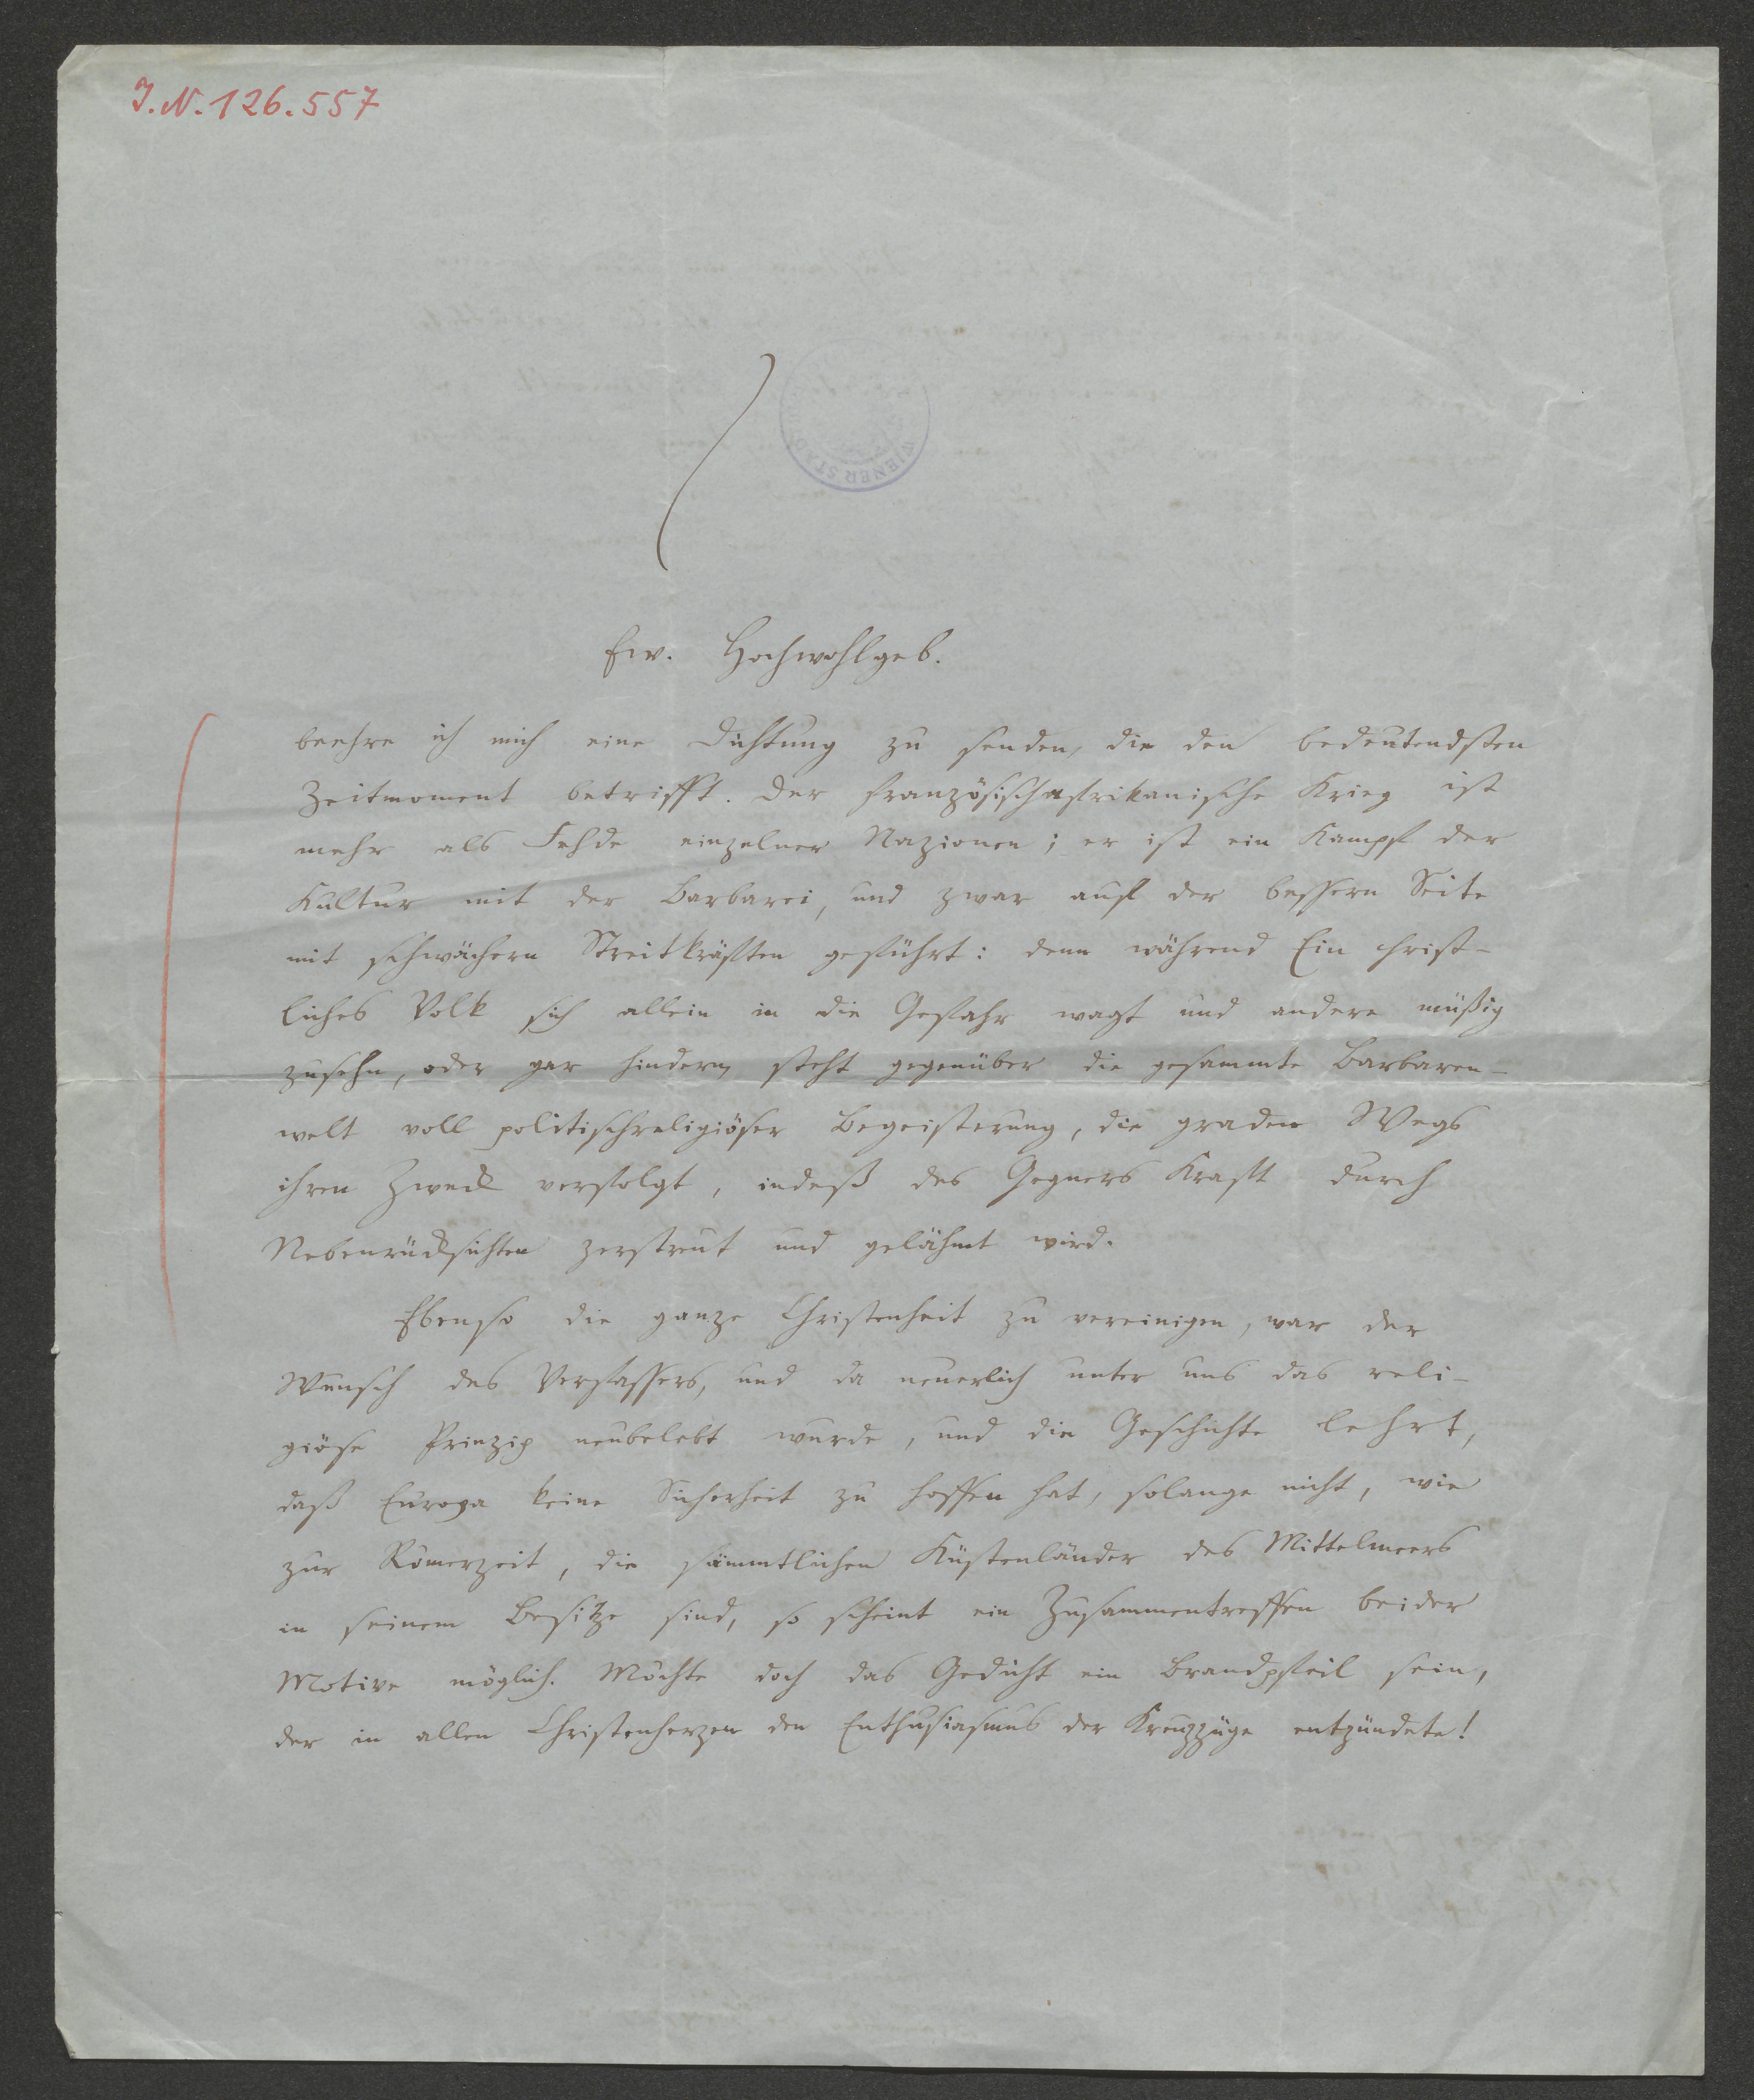 I. N. 126.557
WIENER STAD
Ew. Hochwohlgeb.
beehre ich mich eine Dichtung zu senden, die den bedeutendsten
Zeitmoment betrifft. Der französischafrikanische Krieg ist
mehr als Fehde einzelner Nazionen; er ist ein Kampf der
Kultur mit der Barbarei, und zwar auf der bessern Seite
mit schwächern Streitkräften geführt: denn während Ein christ-
liches Volk sich allein in die Gefahr wagt und andere müßig
zusehn, oder gar hindern, steht gegenüber die gesammte Barbaren-
welt voll politischreligiöser Begeisterung, die graden Wegs
ihren Zweck verfolgt, indeß des Gegners Kraft durch
Nebenrücksichten zerstreut und gelähmt wird.
Ebenso die ganze Christenheit zu vereinigen, war der
Wunsch des Verfassers, und da neuerlich unter uns das reli-
giöse Prinzip neubelebt wurde, und die Geschichte lehrt,
daß Europa keine Sicherheit zu hoffen hat, solange nicht, wie
zur Römerzeit, die sämmtlichen Küstenländer des Mittelmeers
in seinem Besitze sind, so scheint ein Zusammentreffen beider
Motive möglich. Möchte doch das Gedicht ein Brandpfeil sein,
der in allen Christenherzen den Enthusiasmus der Kreuzzüge entzündete!